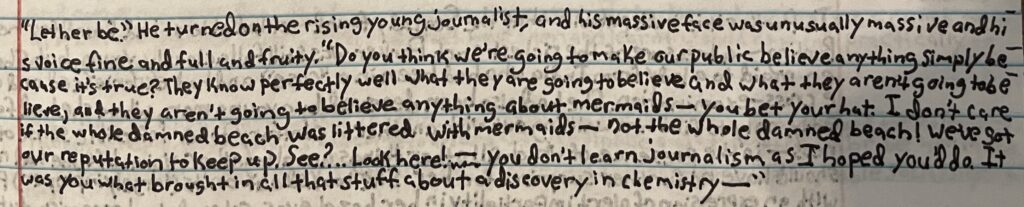 "Let her be." He turned on the rising young journalist, and his massive face was unusually massive and hi-
s voice fine and full and fruity. "Do you think we're going to make our public believe anything simply be-
cause it's true? They know perfectly well what they are going to believe and what they aren't going to be-
lieve, and they aren't going to believe anything about mermaids— you bet your hat. I don't care
if the whole damned beach was littered with mermaids— not the whole damned beach! We've got
our reputation to keep up. See?... Look here!— you don't learn journalism as I hoped you'd do. It
was you what brought in all that stuff about a discovery in chemistry—"